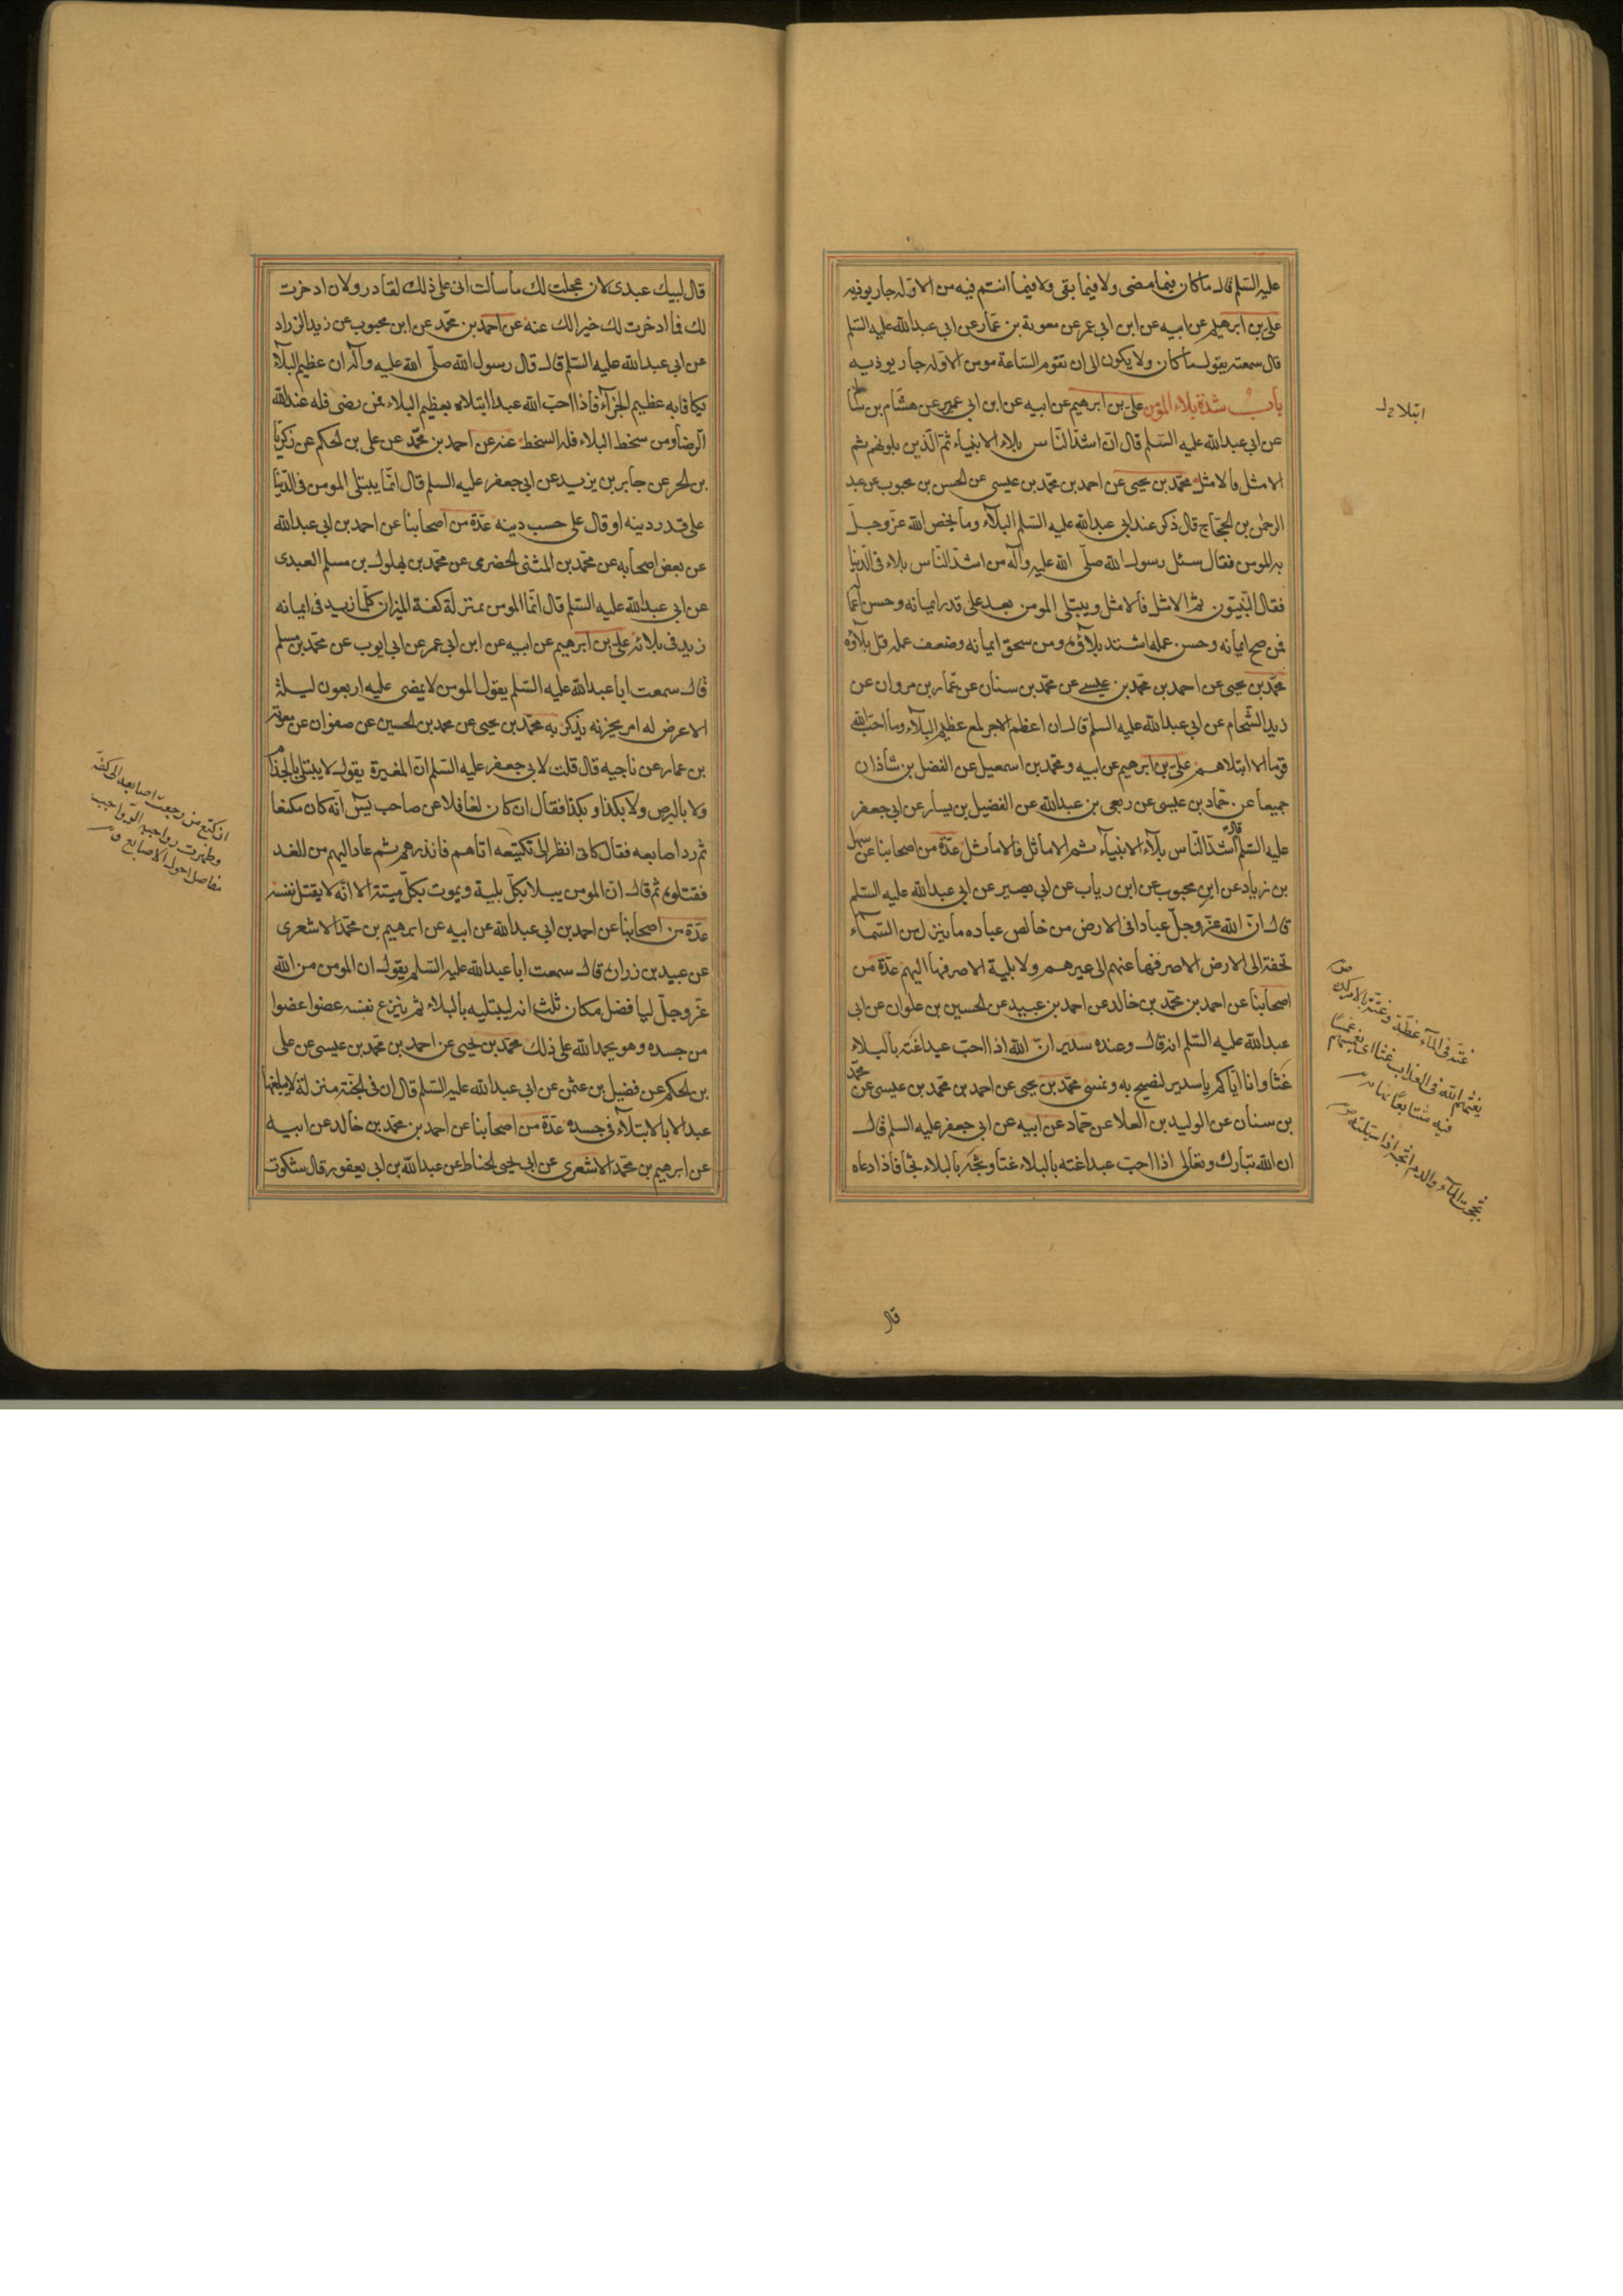 عليه السّلم قال ما كان فيما مضى ولا فيما بقى ولا فيما انتم فيه مومن الا وله جار يوذيه
على بن ابرهيم عن ابيه عن ابن ابى عمير عن معوية بن عمّار عن ابى عبدالله عليه السّلم
قال سمعته يقول ما كان ولا يكون الى ان تقوم الساعة مومن الا وله جار يوذيه
باب شدة بلاء المؤمن على بن ابرهيم عن ابيه عن ابن ابى عمير عن هشام بن سالم
عن ابى عبدالله عليه السّلم قال انّ اشدّ النّاس بلاء الانبياء ثمّ الّذين يلونهم ثم
الامثل فالامثل محمّد بن يحيى عن احمد بن محمّد بن عيسى عن الحسن بن محبوب عن عبد
الرحمن بن الحجّاج قال ذكر عند ابى عبدالله عليه السّلم البلاء وما يخص الله عزّ وجلّ
به المومن فقال سئل رسول الله صلّى الله عليه وآله من اشدّ النّاس بلاء فى الدّنيا
فقال النّبيّون ثم الامثل فالامثل ويبتلى المومن بعد على قدر ايمانه وحسن اعماله
فمن صح ايمانه وحسن عمله اشتد بلاؤه ومن سخف ايمانه وضعف عمله قل بلاؤه
محمّد بن يحيى عن احمد بن محمّد بن عيسى عن محمّد بن سنان عن عمّار بن مروان عن
زيد الشّحام عن ابى عبدالله عليه السلم قال ان اعظم الاجر لمع عظيم البلاء وما احبّ الله
قوما الا ابتلاهم على بن ابرهيم عن ابيه ومحمد بن اسمعيل عن الفضل بن شاذان
جميعا عن حمّاد بن عيسى عن ربعى بن عبدالله عن الفضيل بن يسار عن ابى جعفر
عليه السّلم قال اشدّ النّاس بلآء الانبيآء ثم الاماثل فالاماثل عدّة من اصحابنا عن سهل
بن زياد عن ابن محبوب عن ابن رياب عن ابى بصير عن ابى عبدالله عليه السّلم
قال انّ الله عزّ وجلّ عبادا فى الارض من خالص عباده ما ينزل من السّماء
تحفة الى الارض الا صرفها عنهم الى غيرهم ولا بلية الا صرفها اليهم عدّة من
اصحابنا عن احمد بن محمّد بن خالد عن احمد بن عبيد عن الحسين بن علوان عن ابى
عبدالله عليه السّلم انه قال وعنده سدير انّ الله اذا احبّ عبدا غته بالبلاء
غتا وانا ايّاكم يا سدير لنصبح به ونمسى محمّد بن يحيى عن احمد بن محمّد بن عيسى عن محمّد
بن سنان عن الوليد بن العلا عن حمّاد عن ابيه عن ابى جعفر عليه السلم قال
ان الله تبارك وتعالى اذا احبّ عبدا غته بالبلاء غتا وثجه بالبلاء ثجا فاذا دعاه
ابتلاء
غته فى المآء غطه وغته بالامر كده
يغتهم الله فى العذاب غتا اى يغمسهم
فيه متتابعا
ثججت المآء والدم اثجه اذا سيلته
قال
قال لبيك عبدى لان عجلت لك ما سالت انى على ذلك لقادر ولان ادخرت
لك فما ادخرت لك خير لك عنه عن احمد بن محمّد عن ابن محبوب عن زيد الزراد
عن ابى عبدالله عليه السّلم قال قال رسول الله صلّى الله عليه وآله ان عظيم البلآء
يكافا به عظيم الجزآء فاذا احبّ الله عبدا ابتلاه بعظيم البلاء فمن رضى فله عند الله
الرضا ومن سخط البلاء فله السخط عنه عن احمد بن محمّد عن على بن الحكم عن زكريّا
بن الحر عن جابر بن يزيد عن ابى جعفر عليه السلم قال انّما يبتلى المومن فى الدّنيا
على قدر دينه او قال على حسب دينه عدّة من اصحابنا عن احمد بن ابى عبدالله
عن بعض اصحابه عن محمّد بن المثنى الحضرمى عن محمّد بن بهلول بن مسلم العبدى
عن ابى عبدالله عليه السّلم قال انّما المومن بمنزلة كفة الميزان كلّما زيد فى ايمانه
زيد فى بلائه على بن ابرهيم عن ابيه عن ابن ابى عمير عن ابى ايوب عن محمّد بن مسلم
قال سمعت ابا عبدالله عليه السّلم يقول المومن لا يمضى عليه اربعون ليلة
الا عرض له امر يحزنه يذكر به محمّد بن يحيى عن محمد بن الحسين عن صفوان عن معوية
بن عمار عن ناجيه قال قلت لابى جعفر عليه السّلم انّ المغيرة يقول لا يبتلى بالجذام
ولا بالبرص ولا بكذا وبكذا فقال ان كان لغافلا عن صاحب يس انّه كان مكنعا
ثم رد اصابعه فقال كانى انظر الى تكنيعه اتاهم فانذرهم ثم عاد اليهم من الغد
فقتلوه ثم قال انّ المومن يبتلا بكلّ بلية ويموت بكلّ ميتة الا انّه لا يقتل نفسه
عدّة من اصحابنا عن احمد بن ابى عبدالله عن ابيه عن ابرهيم بن محمّد الاشعرى
عن عبيد بن زرارة قال سمعت ابا عبدالله عليه السّلم يقول ان المومن من الله
عزّ وجلّ لبافضل مكان ثلث انه ليبتليه بالبلاء ثم ينزع نفسه عضوا عضوا
من جسده وهو يحمد الله على ذلك محمّد بن يحيى عن احمد بن محمّد بن عيسى عن على
بن الحكم عن فضيل بن عثمن عن ابى عبدالله عليه السّلم قال ان فى الجنّة منزلة لا يبلغها
عبد الا بالابتلآء فى جسده عدّة من اصحابنا عن احمد بن محمّد بن خالد عن ابيه
عن ابرهيم بن محمّد الاشعرى عن ابى يحيى الحناط عن عبدالله بن ابى يعفور قال شكوت
الاكنع من رجعت اصابعه الى كفه
وظهرت رواجبه الرواجب
مفاصل اصول الاصابع